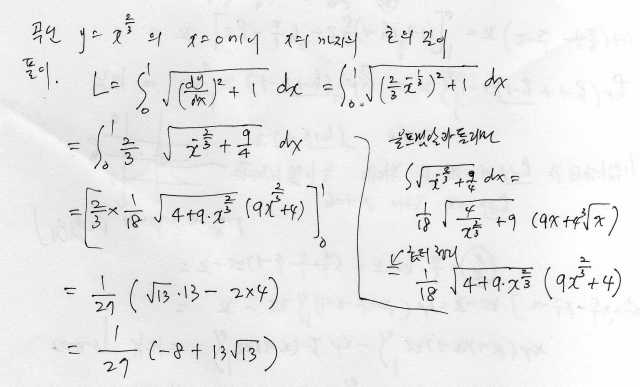 곡선 y = x^{2/3} 의 x=0에서 x=1까지의 호의 길이
풀이.
L = ∫_0^1 √((dy/dx)^2 + 1) dx = ∫_0^1 √((2/3 x^{-1/3})^2 + 1) dx
= ∫_0^1 2/3 √(x^{-2/3} + 9/4) dx
= [2/3 × 1/18 √(4+9·x^{2/3}) (9x^{2/3}+4)]_0^1
= 1/27 (√13·13 − 2×4)
= 1/27 (−8 + 13√13)
울프램알파 돌리면
∫√(x^{-2/3} + 9/4) dx =
1/18 √(4/x^{2/3} + 9) (9x+4∛x)
= 1/18 √(4+9·x^{2/3}) (9x^{2/3}+4)